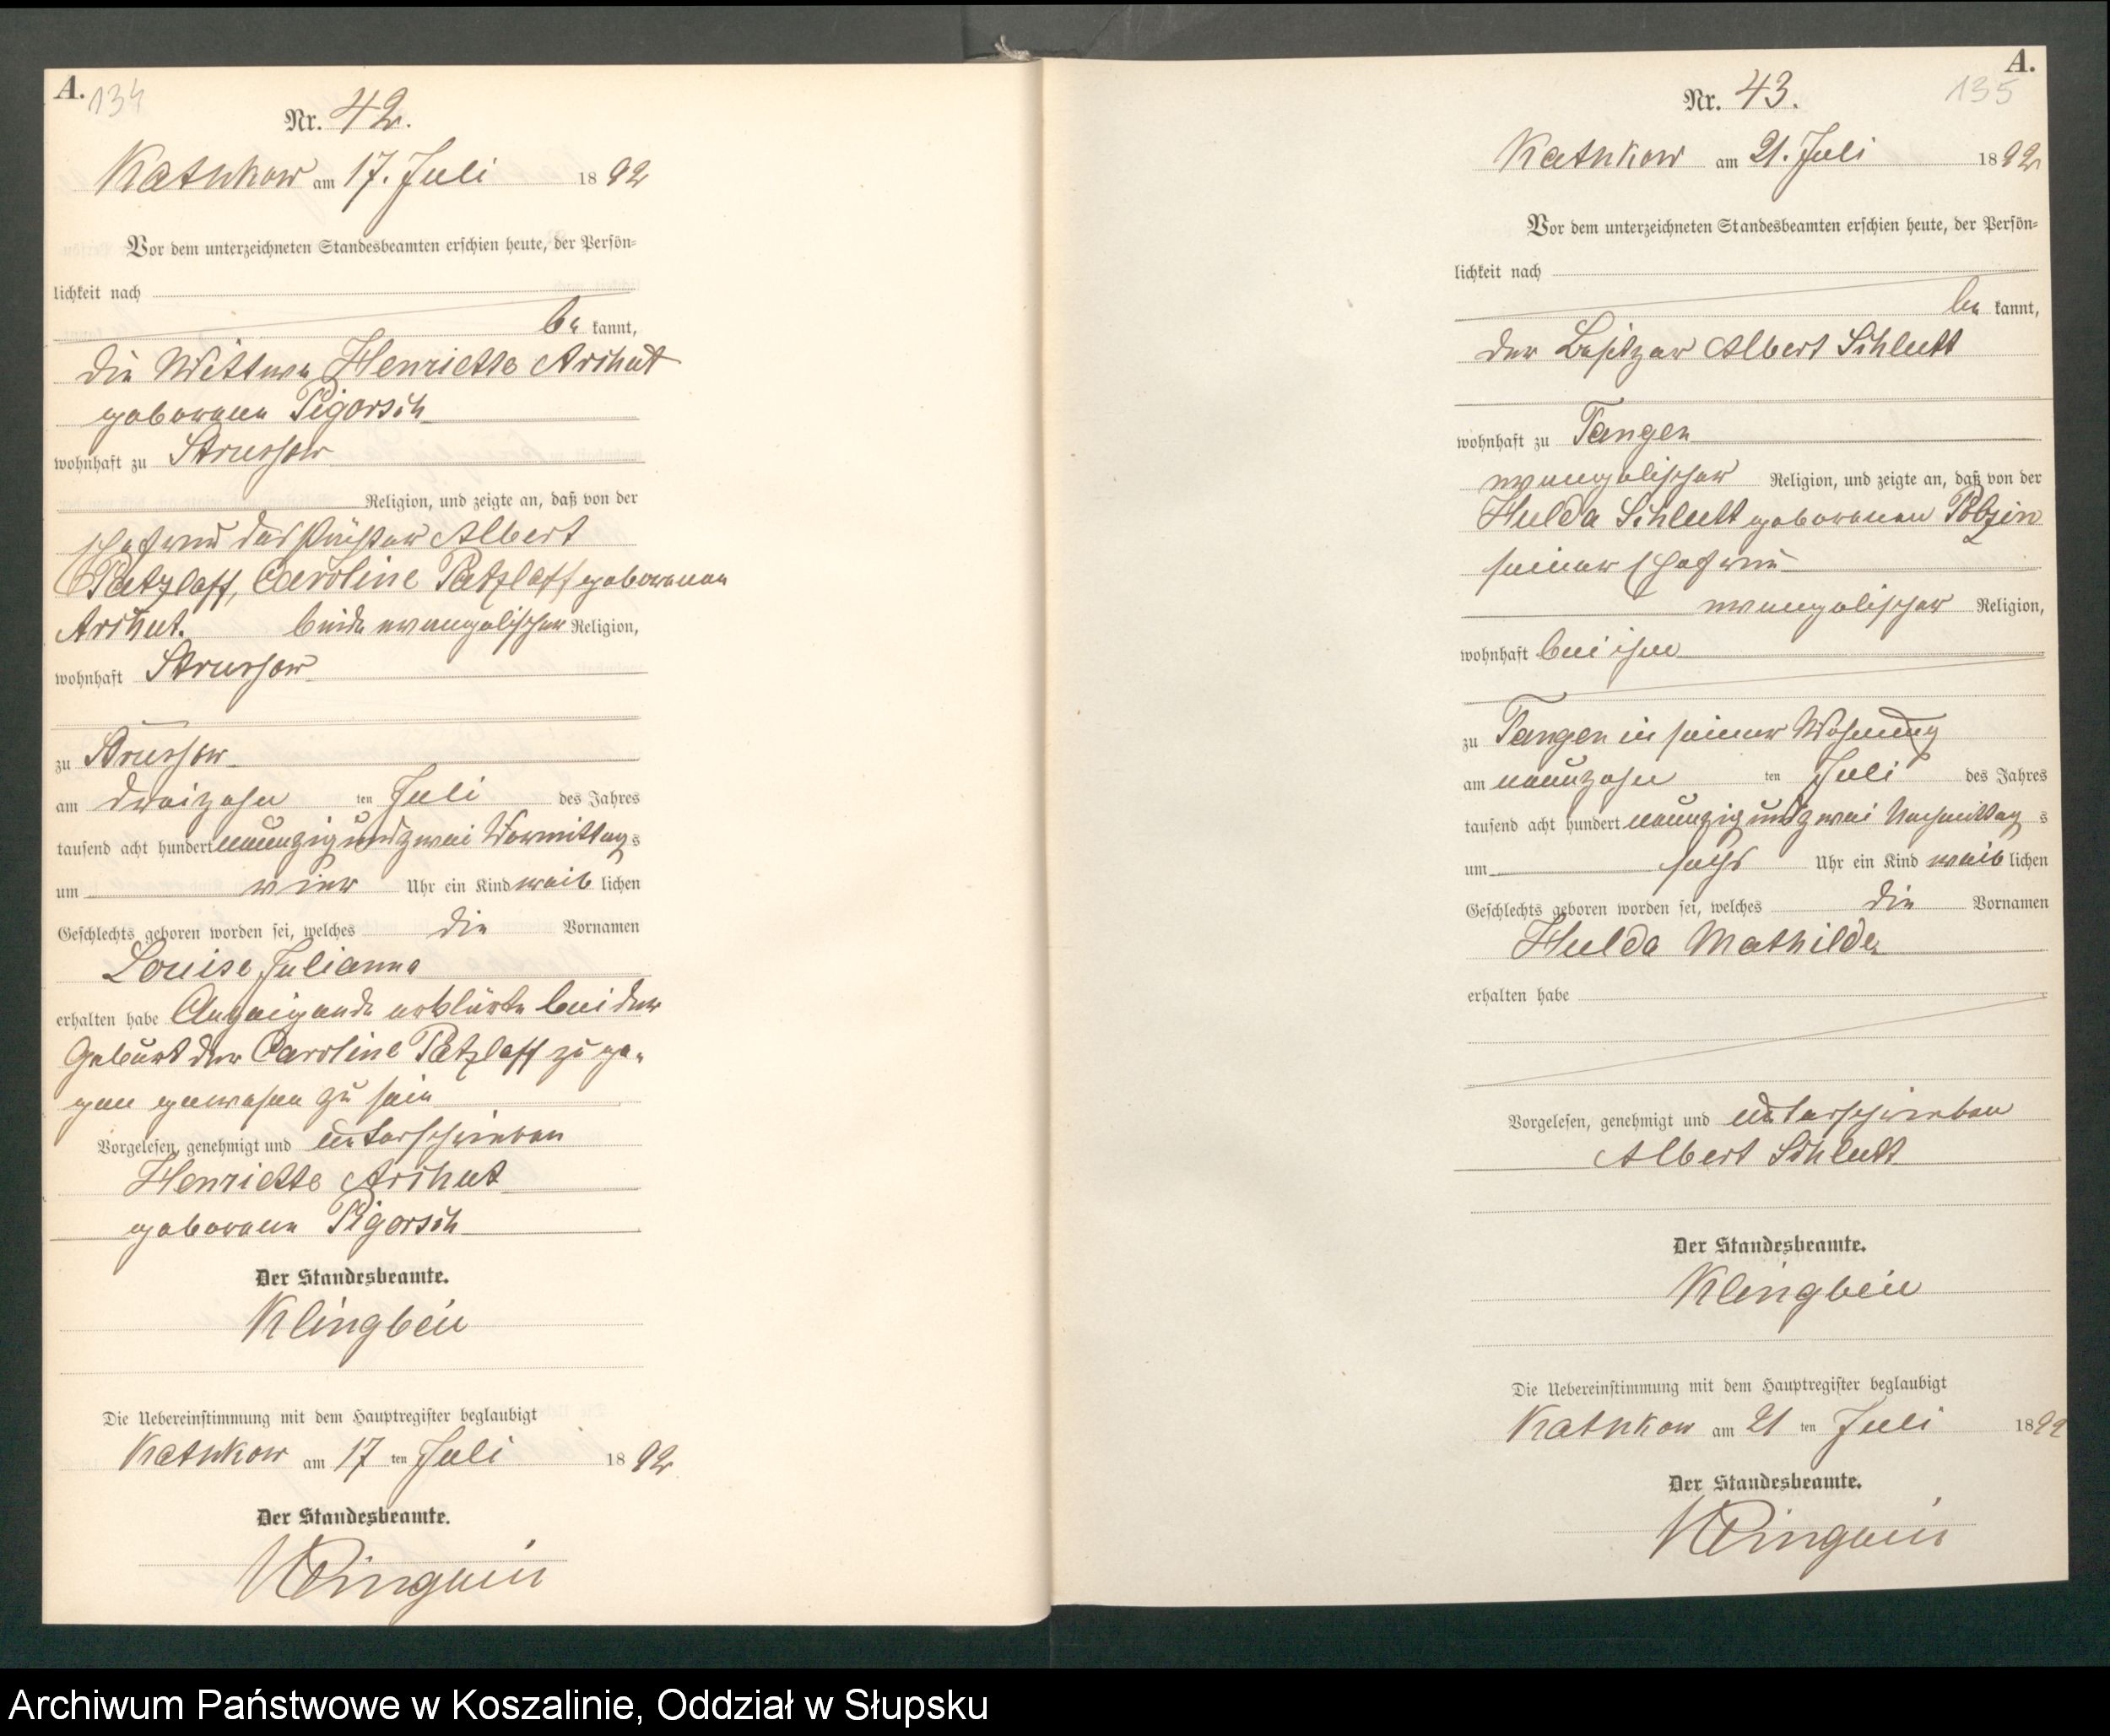 A.
134
Nr. 42.
Katkow am 17. Juli 1892
Vor dem unterzeichneten Standesbeamten erschien heute, der Persön-
lichkeit nach
be kannt,
die Wittwe Henriette Arihut
geborene Pigorsch
wohnhaft zu Strussow
Religion, und zeigte an, daß von der
Ehefrau des Albert
Patzlaff, Caroline Patzlaff geborenen
Arihut. beide evangelischer Religion,
wohnhaft Strussow
zu Strussow
am dreizehn ten Juli des Jahres
tausend acht hundert neunzig und zwei Vormittag s
um vier Uhr ein Kind weib lichen
Geschlechts geboren worden sei, welches die Vornamen
Louise Julianna
erhalten habe Anzeigende erklärte bei der
Geburt der Caroline Patzlaff zuge-
gen gewesen zu sein
Vorgelesen, genehmigt und unterschrieben
Henriette Arihut
geborene Pigorsch
Der Standesbeamte.
Klingbeil
Die Uebereinstimmung mit dem Hauptregister beglaubigt
Katkow am 17 ten Juli 1892
Der Standesbeamte.
Klingbeil
A.
135
Nr. 43.
Katkow am 21. Juli 1892
Vor dem unterzeichneten Standesbeamten erschien heute, der Persön-
lichkeit nach
be kannt,
der Besitzer Albert Schlutt
wohnhaft zu Tangen
evangelischer Religion, und zeigte an, daß von der
Hulda Schlutt geborenen Pobzin
seiner Ehefrau
evangelischer Religion,
wohnhaft bei ihm
zu Tangen in seiner Wohnung
am neunzehn ten Juli des Jahres
tausend acht hundert neunzig und zwei Nachmittag s
um sechs Uhr ein Kind weib lichen
Geschlechts geboren worden sei, welches die Vornamen
Hulda Mathilde
erhalten habe
Vorgelesen, genehmigt und unterschrieben
Albert Schlutt
Der Standesbeamte.
Klingbeil
Die Uebereinstimmung mit dem Hauptregister beglaubigt
Katkow am 21 ten Juli 1892
Der Standesbeamte.
Klingbeil
Archiwum Państwowe w Koszalinie, Oddział w Słupsku